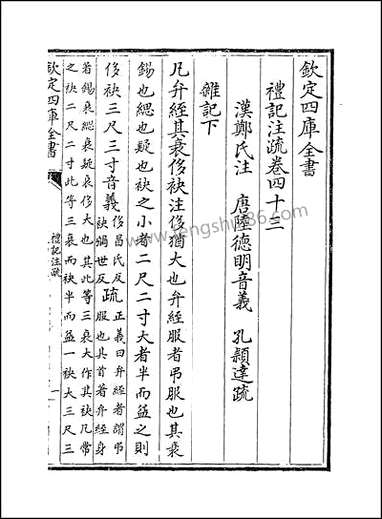 欽定四庫全書
禮記注疏卷四十三
漢鄭氏注　唐陸德明音義　孔穎達疏
雜記下
凡弁絰其衰侈袂注侈猶大也弁絰服者弔服也其衰
錫也緦也疑也袂之小者二尺二寸大者半而益之則
侈袂三尺三寸音義侈昌氏反袂㒇世反疏正義曰弁絰者謂弔服也其首著弁絰身
著錫衰緦衰疑衰侈大也其此等三衰大作其袂凡常
之袂二尺二寸此等三衰而袂半而益一袂大三尺三
欽定四庫全書
禮記注疏